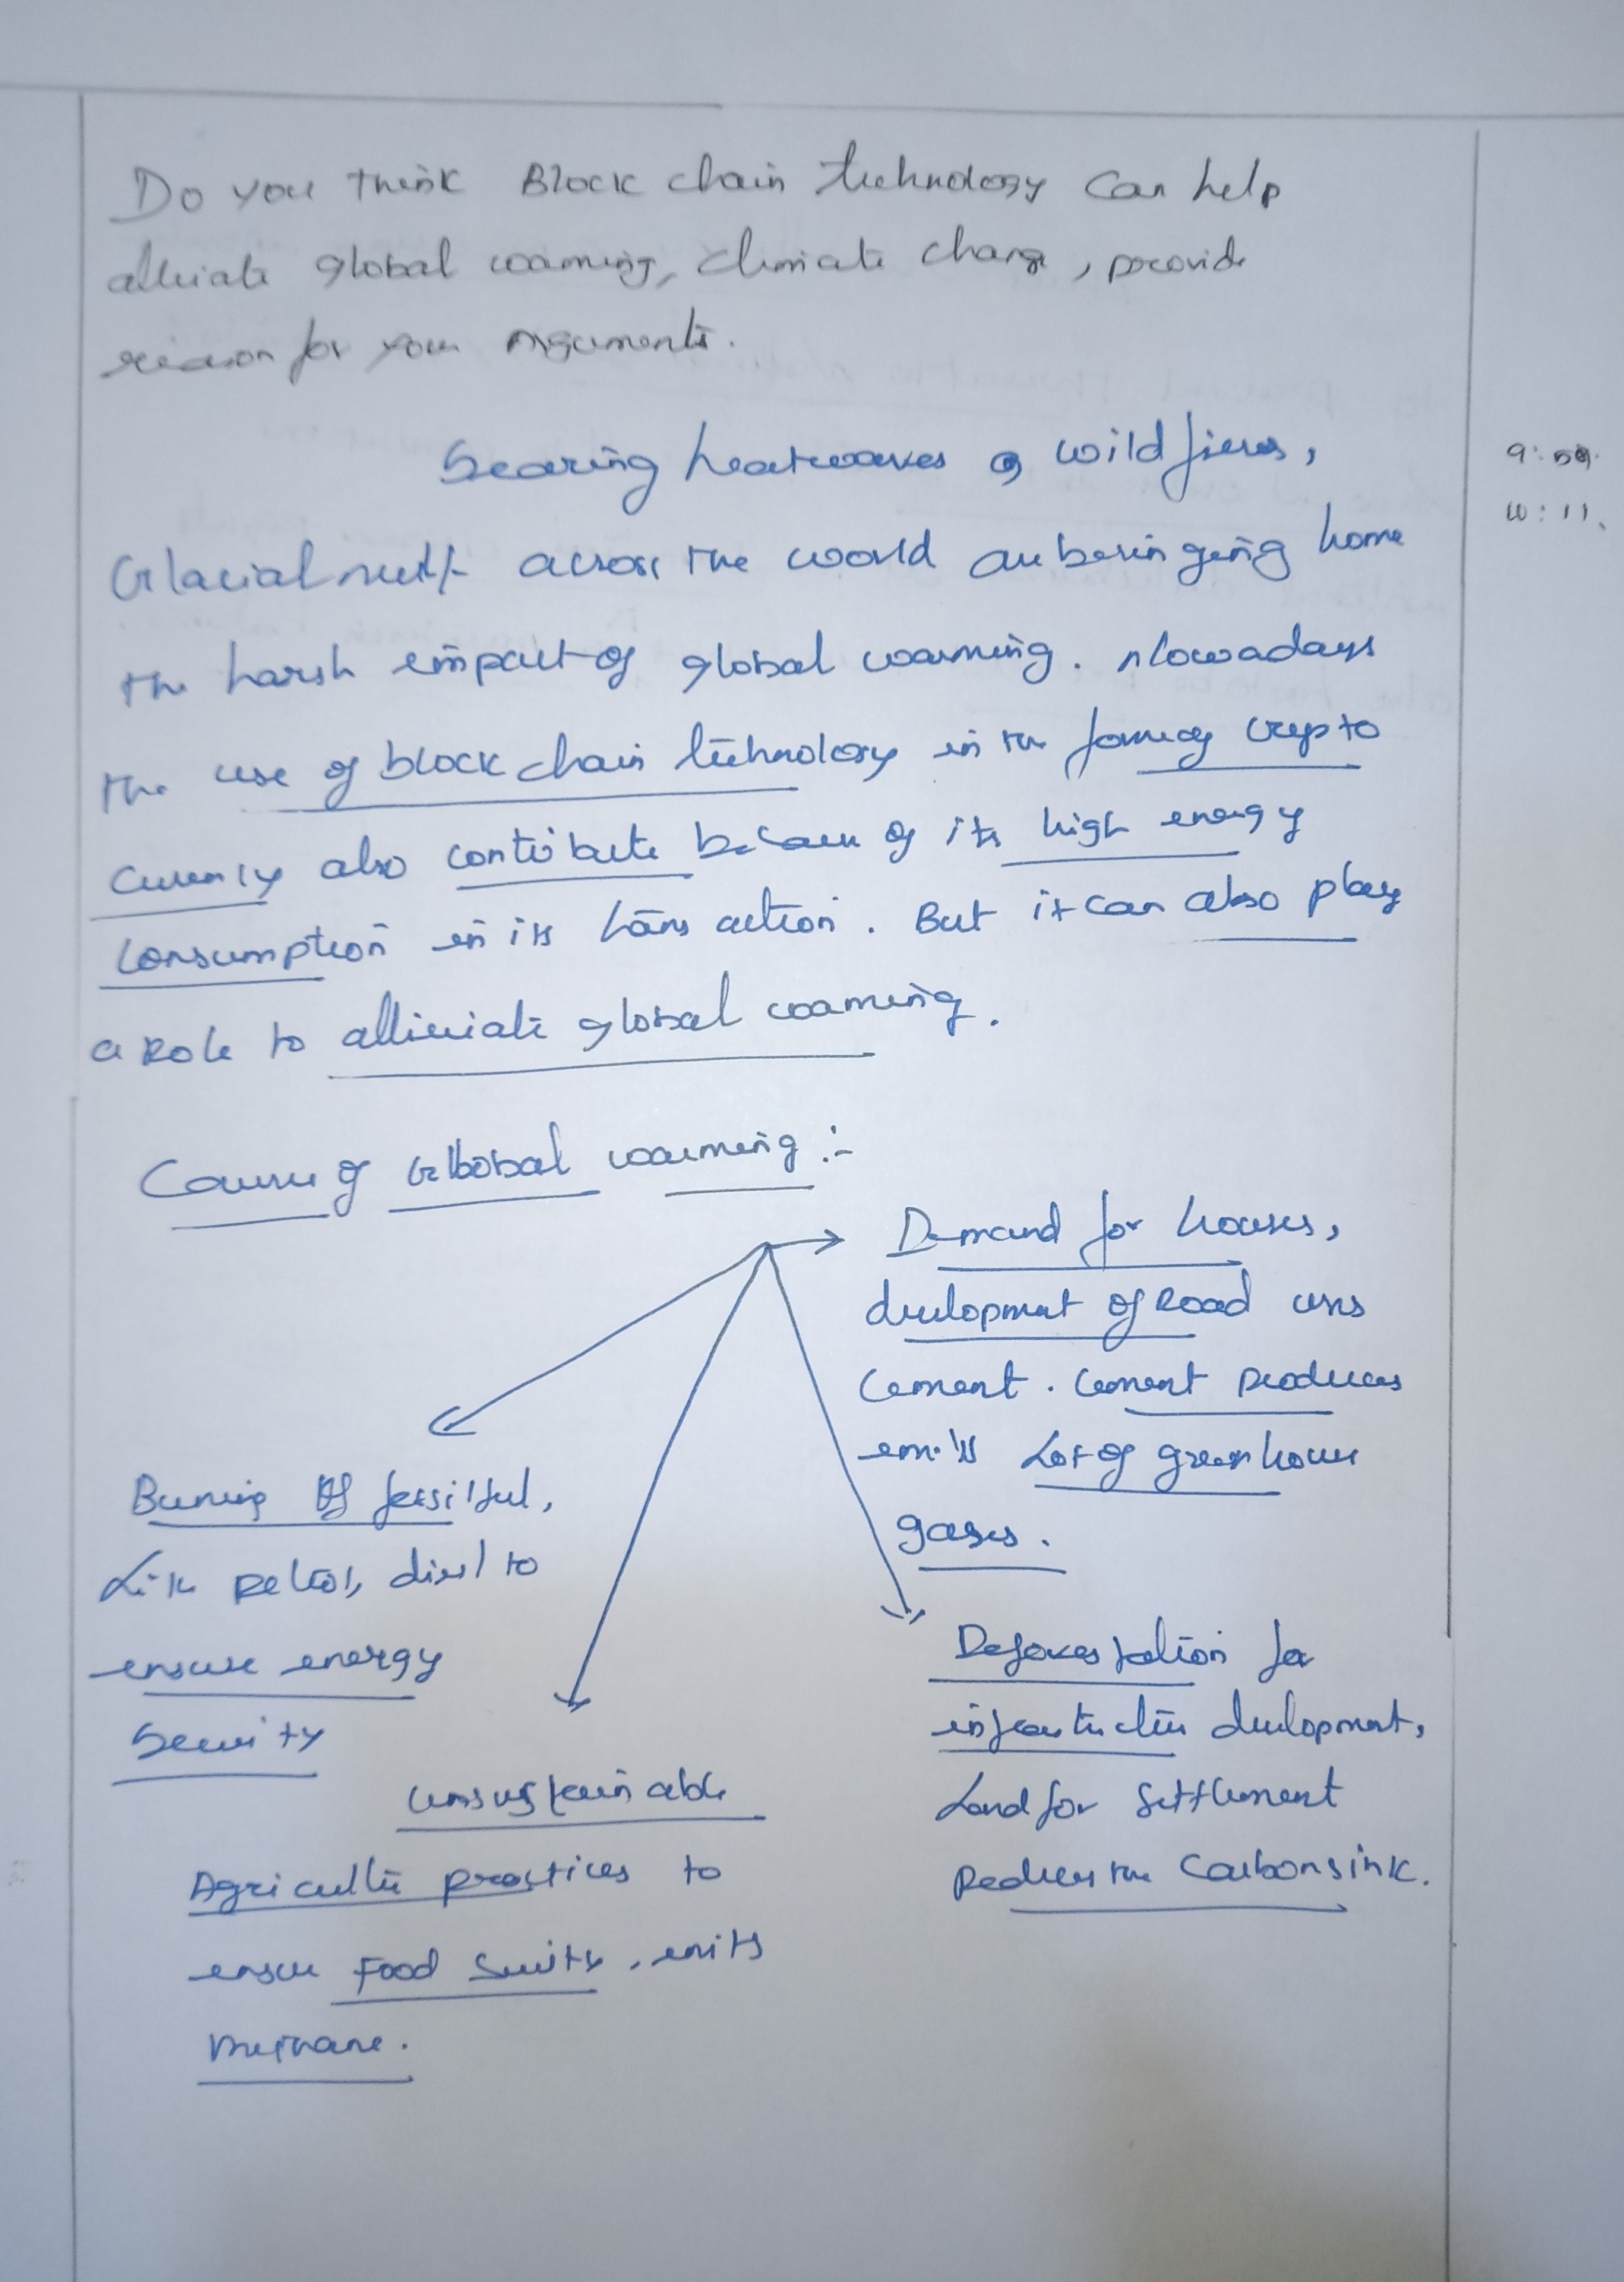 Do you think Block chain technology can help
alliviate global warming, climate change, provide
reason for your Arguments.
Searing heatwaves & wild fires,
9:59
10:11
Glacial melt across the world are beringing home
the harsh eimpact of global warming. Nowadays
the use of block chain technology in the form of crypto
currency also contribute because of its high energy
consumption in its transaction. But it can also play
a role to alliviate global warming.
Causes of Global warming :-
Demand for houses,
development of Road uses
cement. cement produces
emits Lot of greenhouse
gases.
Burning Of fossil fuel,
Like petrol, diesel to
ensure energy
Security
Deforestation for
infrastructure development,
Land for settlement
Reduces the Carbon sink.
Unsustainable
Agriculture practices to
ensure Food Security, emits
methane.